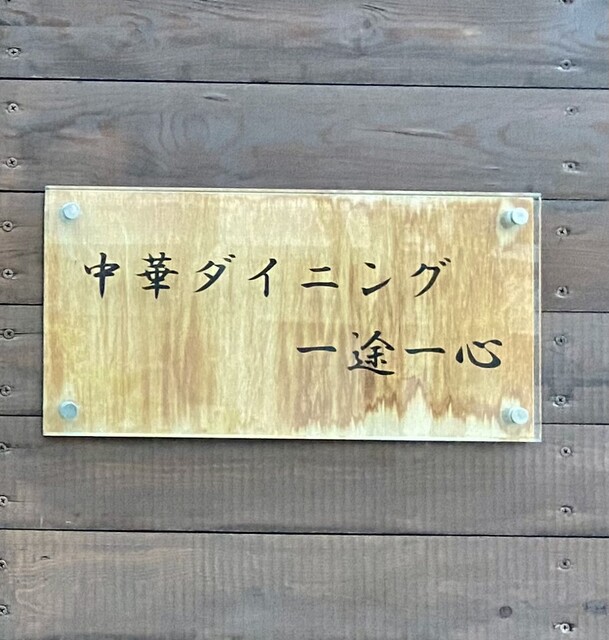 中華ダイニング
一途一心